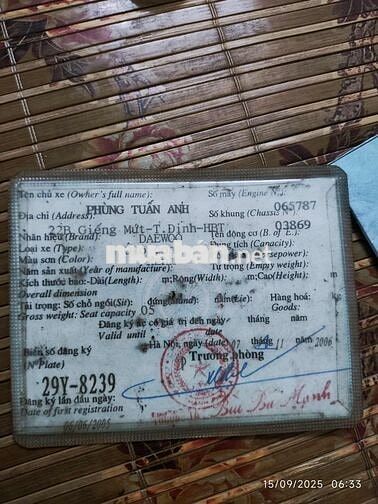 Tên chủ xe (Owner's full name): Số máy (Engine Nº): 065787
PHÙNG TUẤN ANH
Địa chỉ (Address): Số khung (Chassis Nº): 03869
22B Giếng Mứt-T.Định-HBT
Nhãn hiệu (Brand): DAEWOO Tên động cơ (B. of E.):
Loại xe (Type): Dung tích (Capacity):
Màu sơn (Color):
Năm sản xuất (Year of manufacture): Tự trọng (Empty weight):
Kích thước bao: Dài(Length): m;Rộng(Width): m;Cao(Height):
Overall dimension
Tải trọng: Số chỗ ngồi(Sit): đứng nằm(Lie): Hàng hoá:
Gross weight: Seat capacity 05 Goods:
Đăng ký xe có giá trị đến ngày tháng năm
Valid until date
Hà Nội, ngày (date) 07 tháng 11 2006
Biển số đăng ký Trưởng phòng
(Nº Plate)
29Y-8239
Đăng ký lần đầu ngày:
Date of first registration
06/06/2005
Bùi Bá Mạnh
muabán.net
15/09/2025 06:33